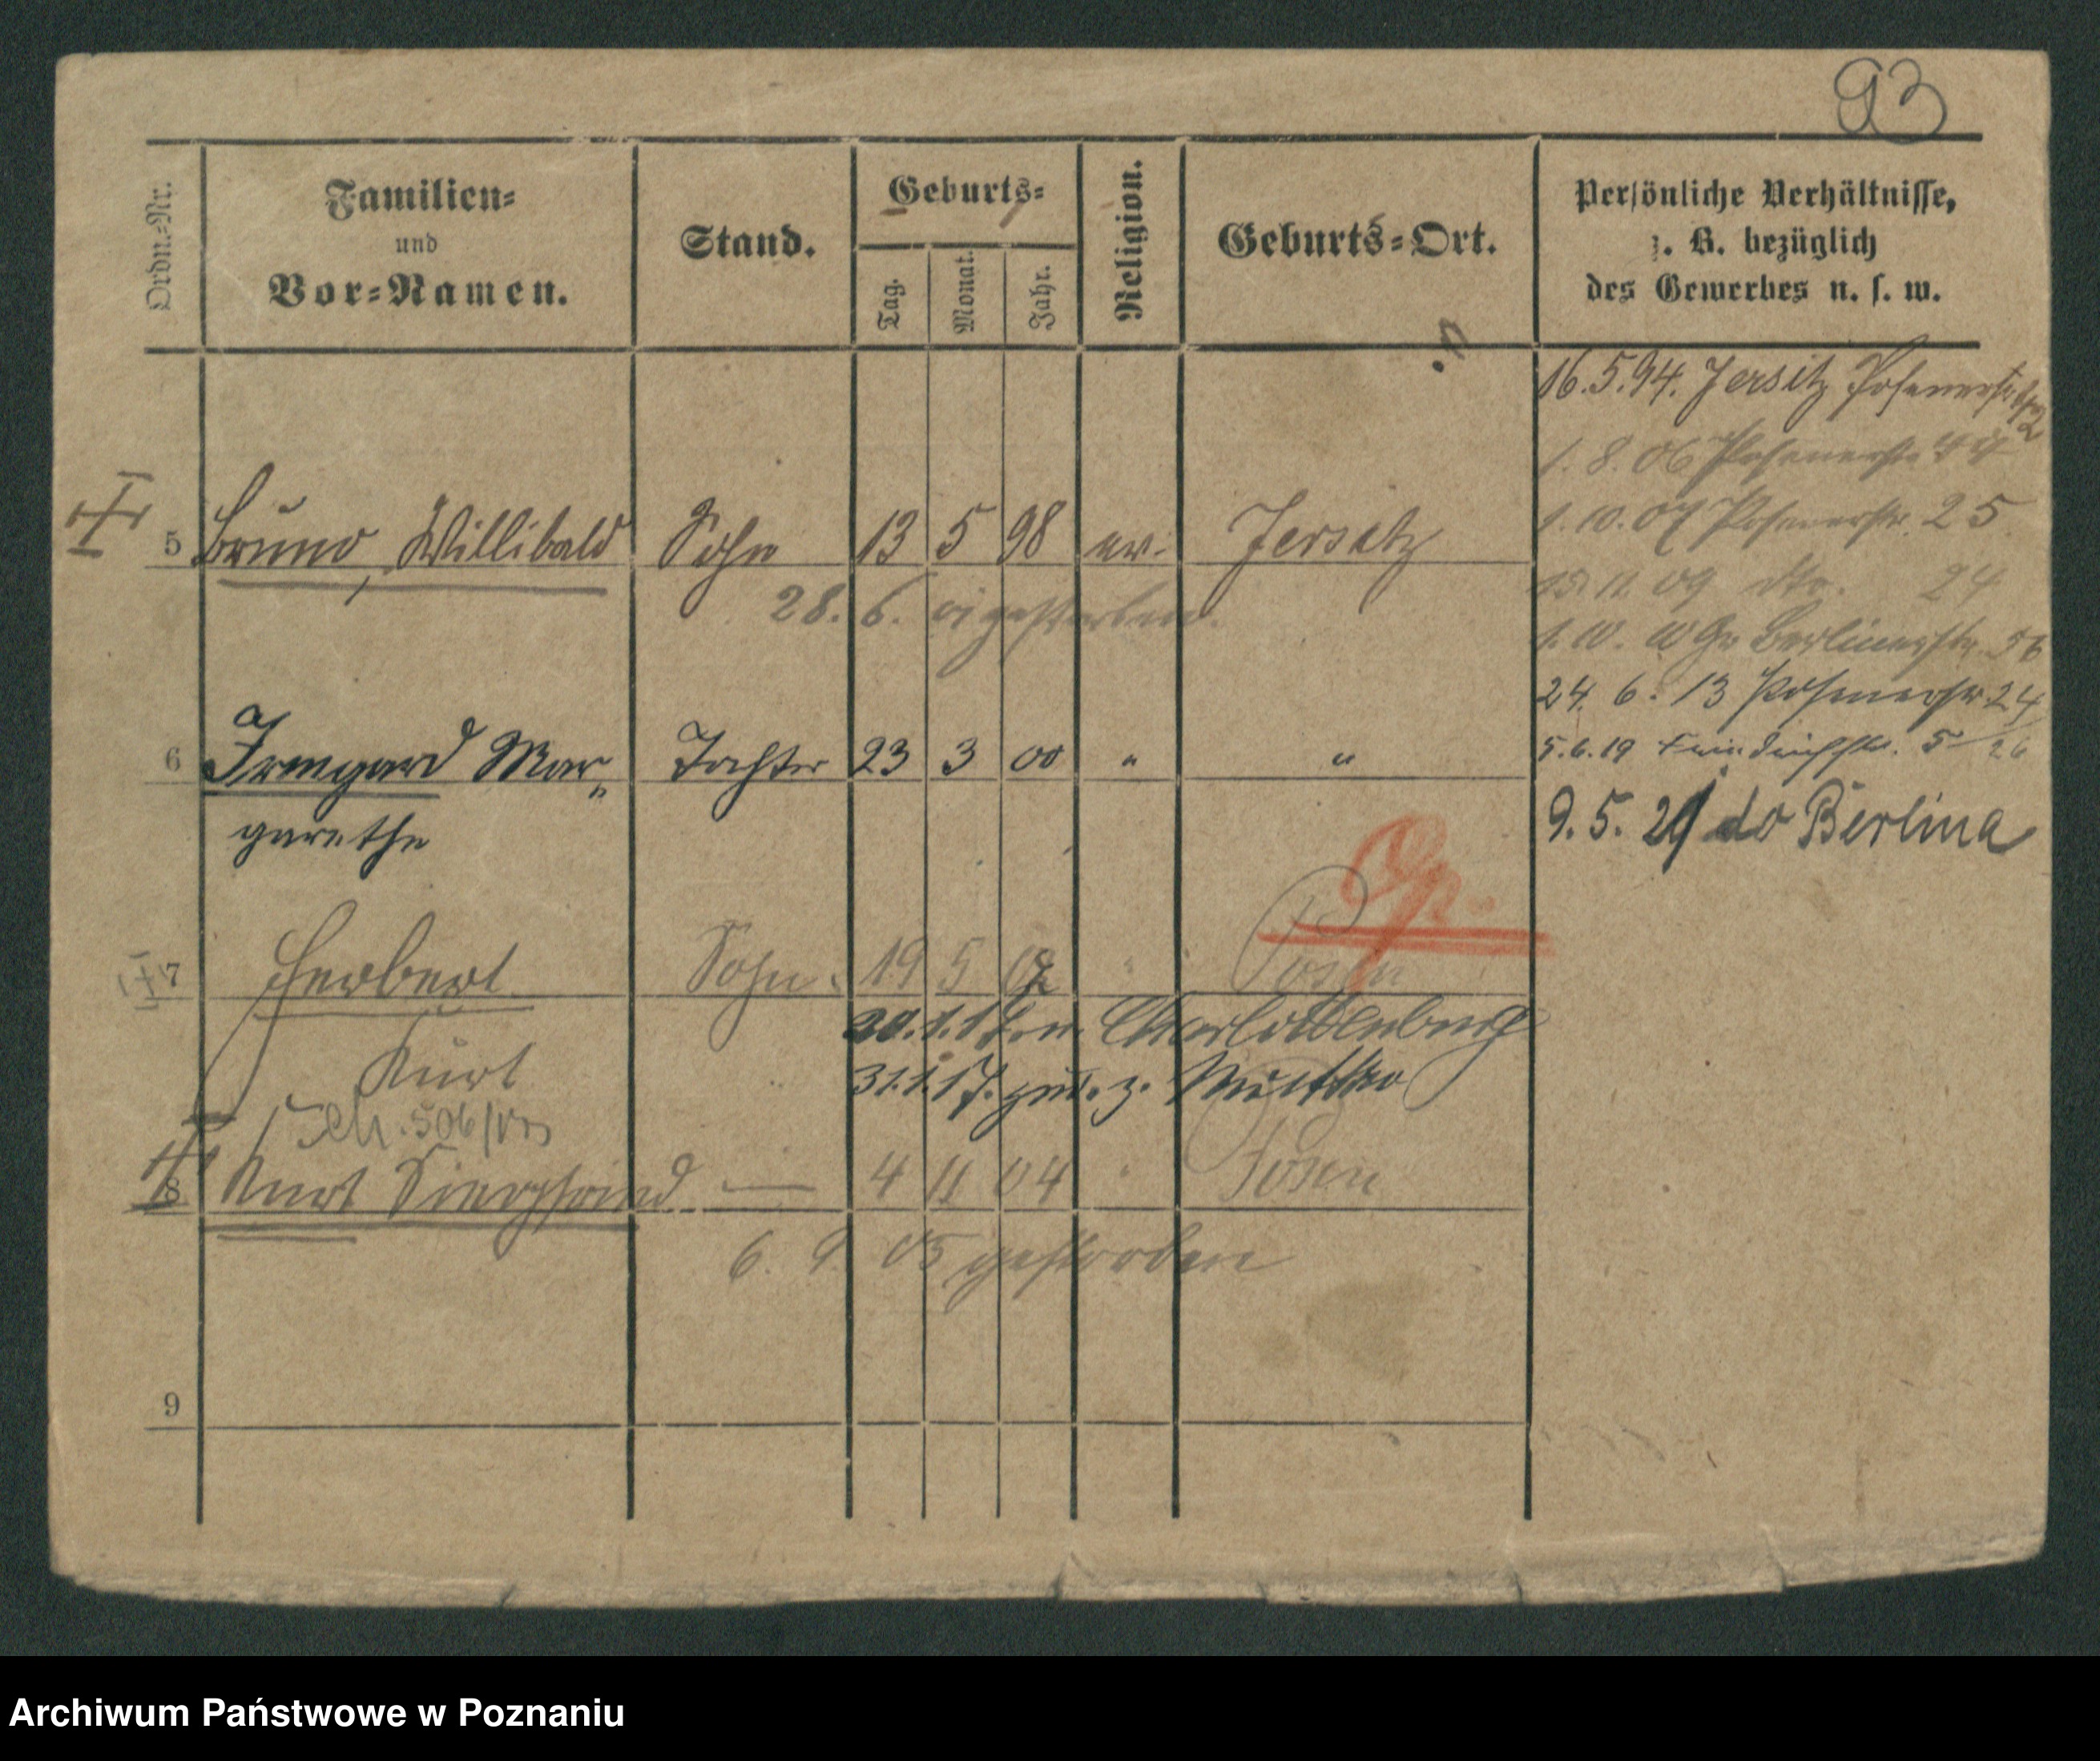 93
Ordn.-Nr.
Familien-
und
Vor-Namen.
Stand.
Geburts-
Tag.
Monat.
Jahr.
Religion.
Geburts-Ort.
Persönliche Verhältnisse,
z. B. bezüglich
des Gewerbes u. s. w.
16.5.94. Jersitz Posenerstr.
1. 8. 06 Posenerstr. 44
1. 10. 07 Posenerstr. 25
15. 11. 09 dto. 24
1. 10. 10 Gr Berlinerstr. 56
24. 6. 13 Posenerstr. 24
5.6.19 Friedrichstr. 5
9. 5. 21 do Berlina
5 Bruno, Willibald Sohn 13 5 98 ev. Jersitz
28. 6. 01 gestorben.
6 Irmgard Mar- Tochter 23 3 00 " "
garethe
7 Herbert Sohn 19 5 02 " Posen
Kurt
20.1.17. n. Charlottenburg
31.1.17. zur. z. Mutter
8 Kurt Siegfried — 4 11 04 " Posen
6. 9. 05 gestorben
9
Archiwum Państwowe w Poznaniu